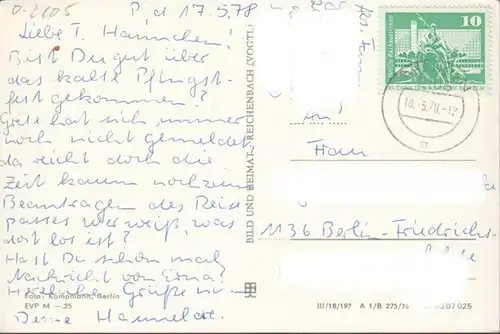 0-2105
P, d 17.5.78
Liebe T. Hannchen!
Bist Du gut über
das kalte Pfingst-
fest gekommen?
Grete hat sich immer
noch nicht gemeldet,
da reicht doch die
Zeit kaum noch zum
Beantragen des Reise
passes. Wer weiß, was
dort los ist?
Hast Du schon mal
Nachricht von Erna?
Herzliche Grüße
Deine Hannelore.
Foto: Kampmann, Berlin
EVP M —.25
BILD UND HEIMAT REICHENBACH (VOGTL)
10
18.-5.78.-12
An
Frau
1136 Berlin-Friedrichs-
III/18/197 A 1/B 275/76 07 025